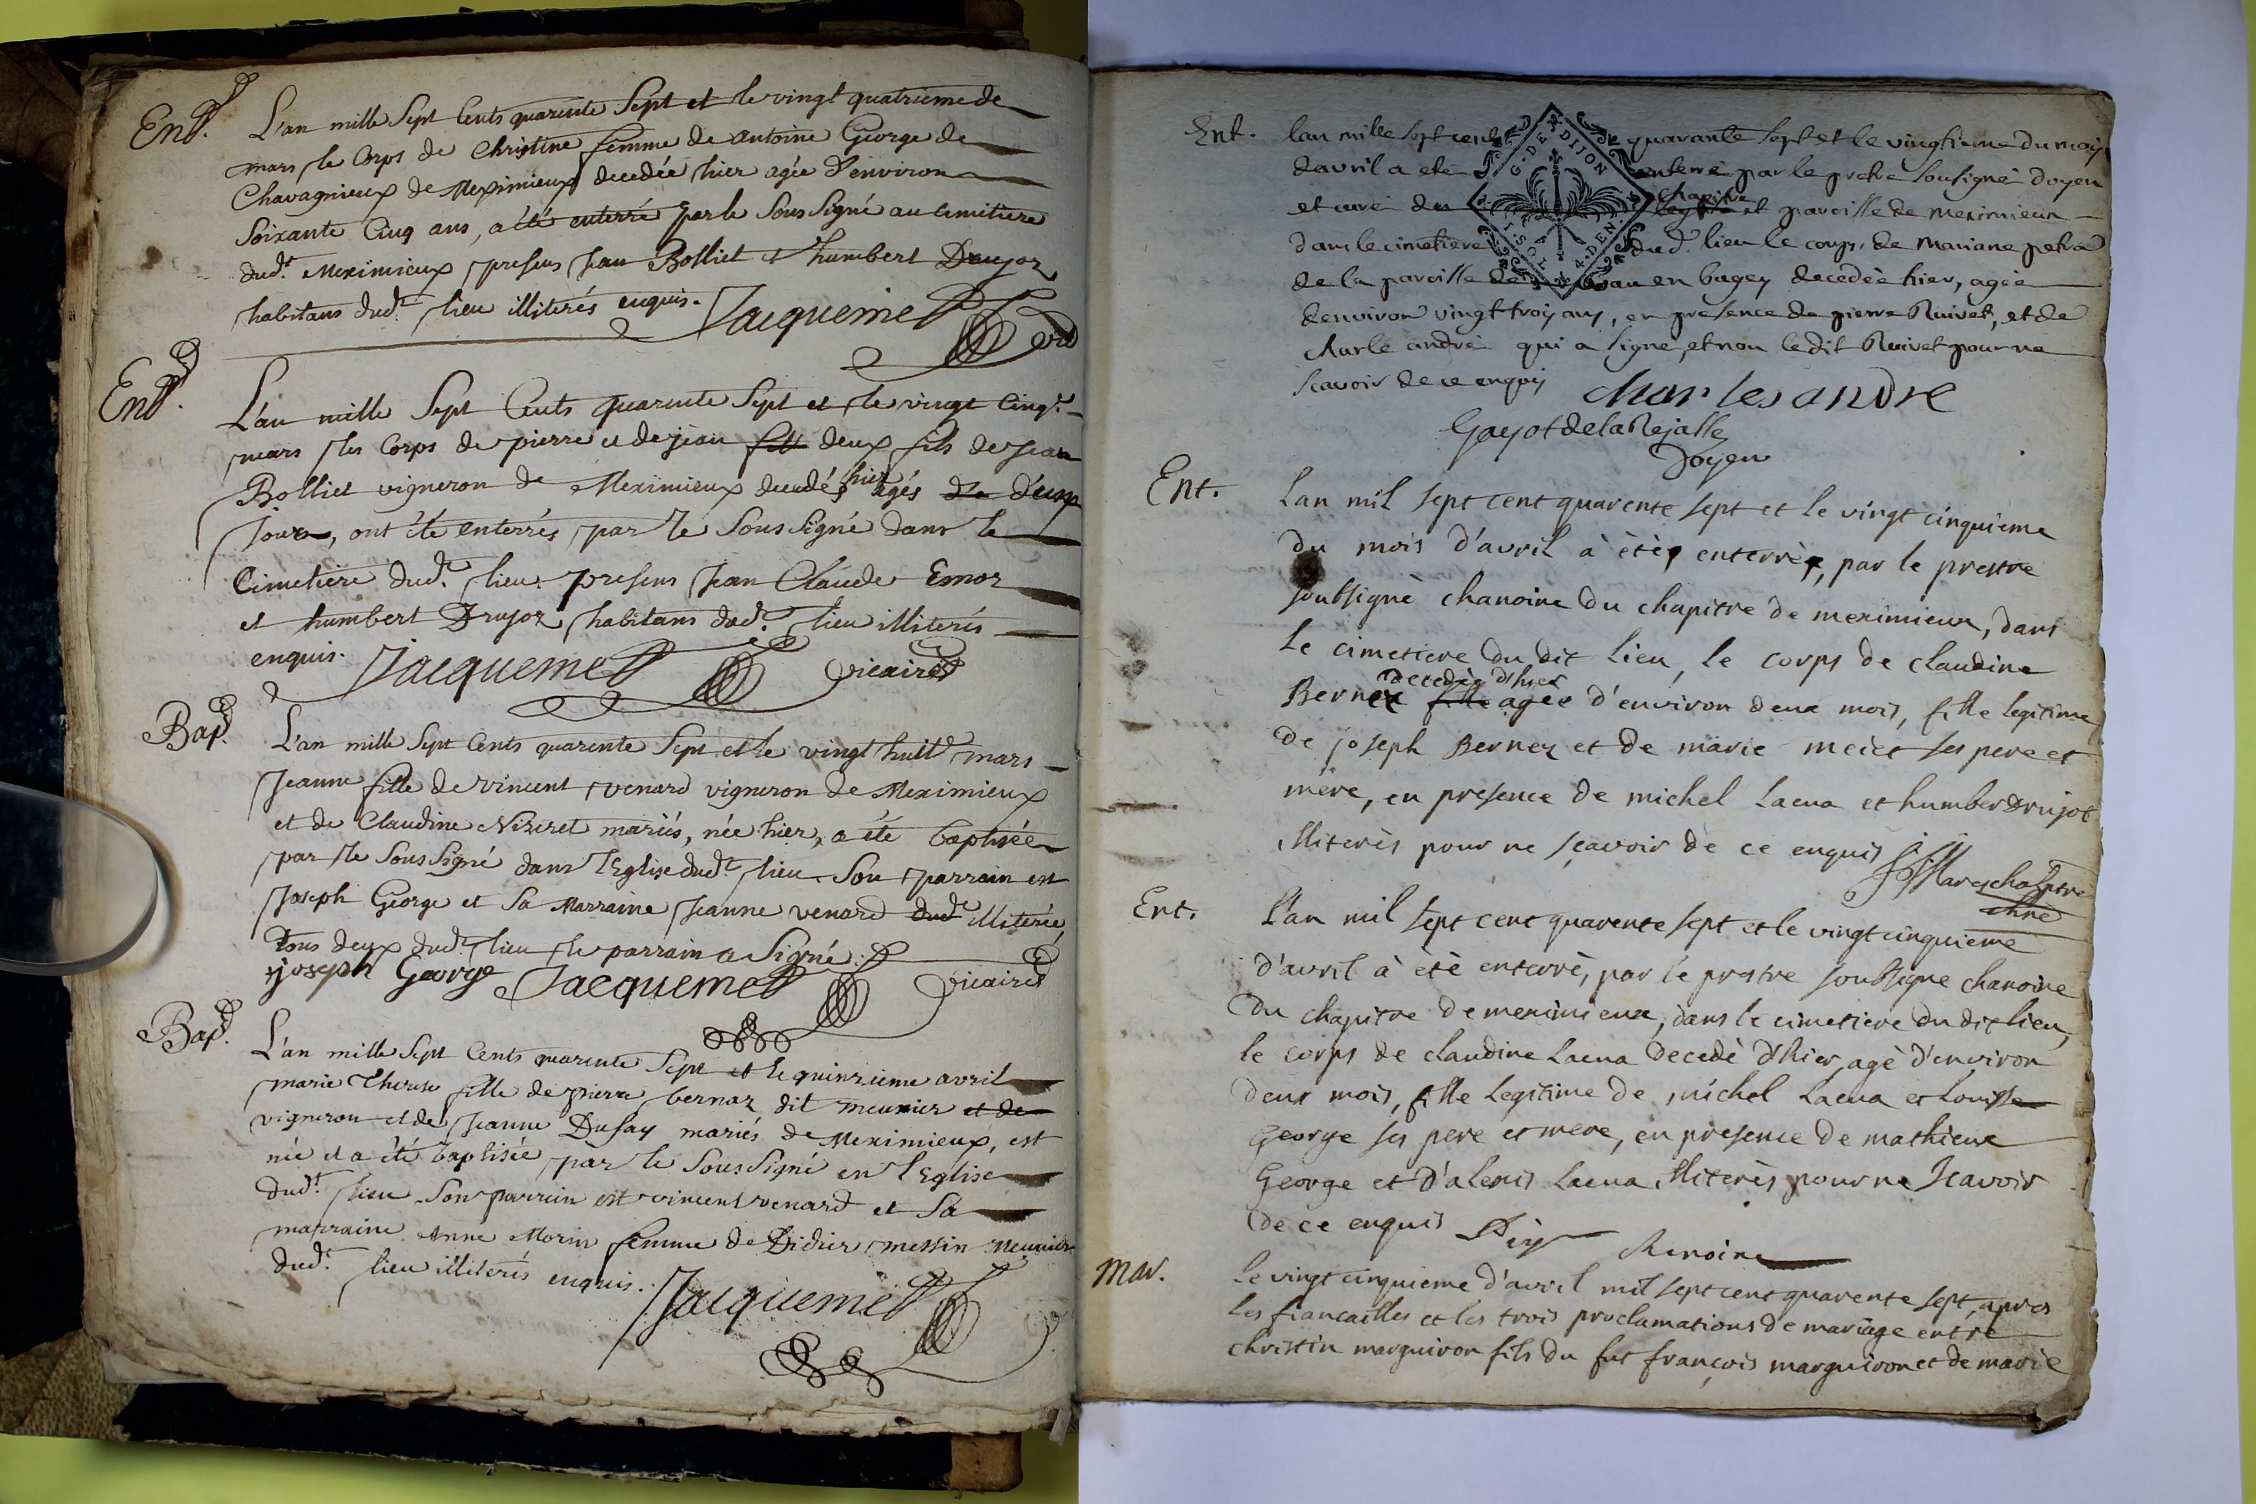 Ent.
L'an mille Sept Cents quarente Sept et le vingt quatrieme de
mars le Corps de Christine femme de antoine George de
Chavagnieux de Meximieux decedée hier agée d'environ
Soixante Cinq ans, a été enterré par le Sous Signé au Cimitiere
dud.t Meximieux presens Jean Bolliet et humbert Drujoz
habitans dud.t lieu illiterés enquis. Jacquemet
Ent.
L'an mille Sept Cents quarente Sept et le vingt Cinq.e
mars les Corps de pierre et de jean fils deux fils de Jean
Bolliet vigneron de Meximieux decedés hier agés de d'un
Jour, ont été enterrés par le Sous Signé dans le
Cimetiere dud.t lieu presens Jean Claude Emoz
et humbert Drujoz habitans dud.t lieu illiterés
enquis. Jacquemet vicaire
Bap.
L'an mille Sept Cents quarente Sept et le vingt huit.e mars
Jeanne fille de vincent venard vigneron de Meximieux
et de Claudine Niziret mariés, née hier, a été baptisée
par le Sous Signé dans l'Eglise dud.t lieu Son parrain est
Joseph George et Sa Marraine Jeanne venard dud.t illiterée
tous deux dud.t lieu le parrain a Signé.
joseph George Jacquemet vicaire
Bap.
L'an mille Sept Cents quarente Sept et le quinzieme avril
marie Therese fille de pierre bernaz dit meunier et de
vigneron et de Jeanne Dufay mariés de Meximieux, est
née et a été baptisée par le Sous Signé en l'Eglise
dud.t lieu Son parrain est vincent venard et Sa
marraine Anne Morin femme de Didier messin Meunier
dud.t lieu illiterés enquis. Jacquemet
Ent. lan mille sept cent quarante sept et le vingtieme du mois
davril a ete enterré par le pretre sousigné doyen
et curé du chapitre et paroisse de meximieux
dans le cimetiere dud.t lieu le corps de mariane petra
de la paroisse de en bugey decedée hier, agée
denviron vingt troy ans, en presence de pierre Ruivet, et de
charle andré qui a signé, et non le dit Ruivet pour ne
scavoir de ce enquis charles andre
Gayot de la Rejasse
Doyen
Ent. Lan mil sept cent quarente sept et le vingt cinquieme
du mois d'avril à étè enterrè, par le prestre
soubsignè chanoine du chapitre de meximieux, dans
le cimetiere du dit lieu, le corps de claudine
decedée d'hier
Bernez fille agée d'environ deux mois, fille legitime
de joseph Bernez et de marie meiet ses pere et
mère, en presence de michel Lacua et humber Drujot
illiterès pour ne sçavoir de ce enquis Mareschal ptre
chne
Ent. L'an mil sept cent quarente sept et le vingt cinquieme
d'avril à étè enterrè, par le prestre soubsigne chanoine
du chapitre de meximieux, dans le cimetiere du dit lieu,
le corps de claudine Lacua decedè d'hier, agè d'environ
deux mois, fille legitime de michel Lacua et Louisse
George ses pere et mere, en presence de mathieux
George et d'alexis Lacua illiterès pour ne scavoir
de ce enquis chanoine
Mar. Le vingt cinquieme d'avril mil sept cent quarente sept, apres
les fiancailles et les trois proclamations de mariage entre
christin marguiron fils du fut françois marguiron et de marie
G. DE DIJON